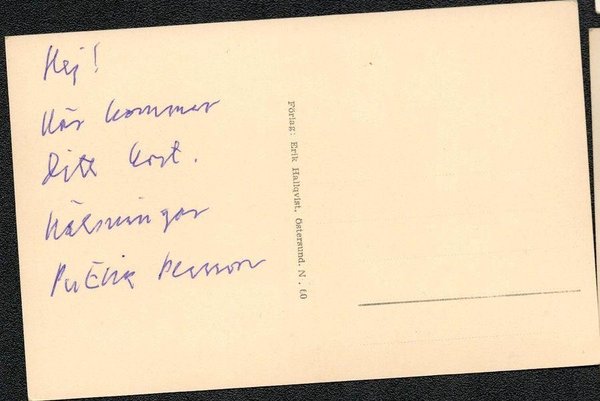 Hej!
Här kommer
Ditt kort.
Hälsningar
Per Erik Persson
Förlag: Erik Hallqvist, Östersund. N. 60